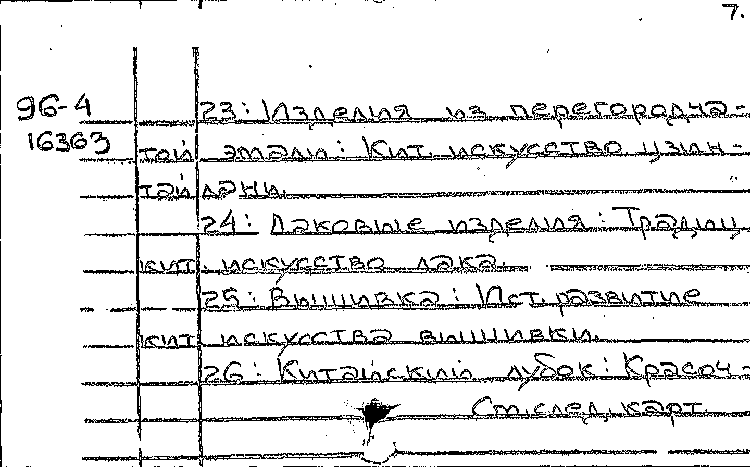 7.
96-4 23: Изделия из перегородча-
16363 той эмали: Кит. искусство цзин-
тай лань.
24: Лаковые изделия: Традиц.
кит. искусство лака.
25: Вышивка: Ист. развитие
кит. искусства вышивки.
26: Китайский лубок: Красоч-
См. след. карт.